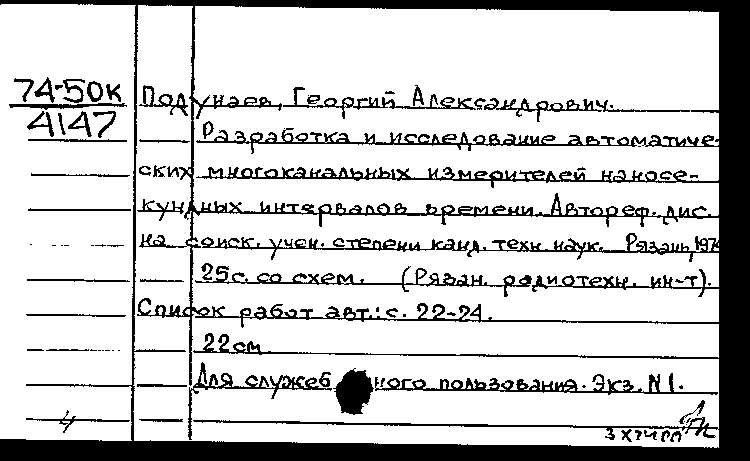 74-50к
4147
Подунаев, Георгий Александрович.
Разработка и исследование автоматиче-
ских многоканальных измерителей наносе-
кундных интервалов времени. Автореф. дис.
на соиск. учен. степени канд. техн. наук. Рязань, 1974
25с. со схем. (Рязан. радиотехн. ин-т).
Список работ авт.: с. 22-24.
22см
Для служебного пользования. Экз. N 1.
4